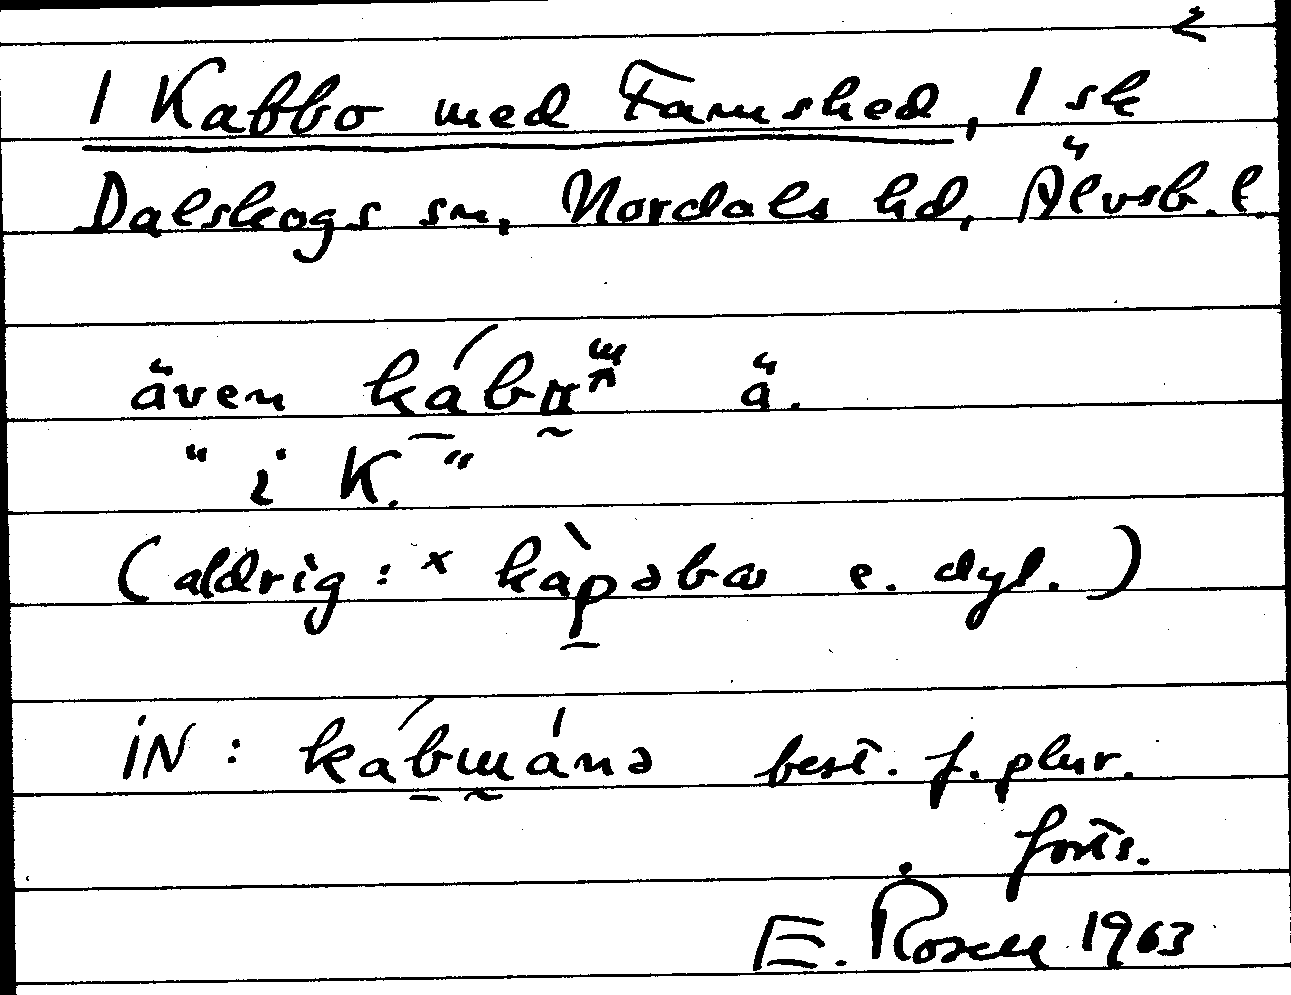 2
1 Kabbo med Famshed, 1 sk
Dalskogs sn, Nordals hd, Älvsb. l.
även ä.
" i K. "
(aldrig: × kàpəbω e. dyl.)
iN: kábɯánə best. f. plur.
forts.
E. Rosell 1963